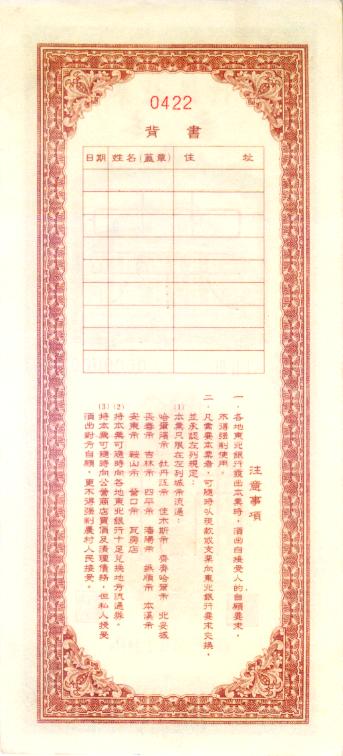 0422
背書
日期 姓名(蓋章) 住址
注意事項
一、各地東北銀行發出本票時，須出自接受人的自願要求，
不得强制使用。
二、凡需要本票者，可隨時以現款或支票向東北銀行要求交換，
並承認左列規定：
(1)本票只限在左列城市流通：
哈爾濱市 牡丹江市 佳木斯市 齊齊哈爾市 北安城
長春市 吉林市 四平市 瀋陽市 撫順市 本溪市
安東市 鞍山市 營口市 瓦房店
(2)持本票可隨時向各地東北銀行十足兌換地方流通券。
(3)持本票可隨時向公營商店買貨及清理債務，但私人授受
須出對方自願，更不得强制農村人民接受。